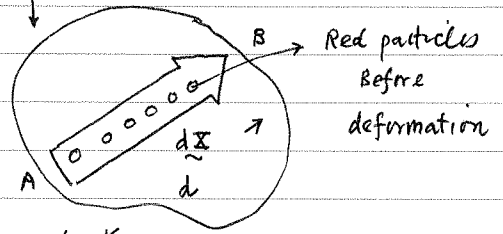 B
Red particles
Before
deformation
dX
~
A
d